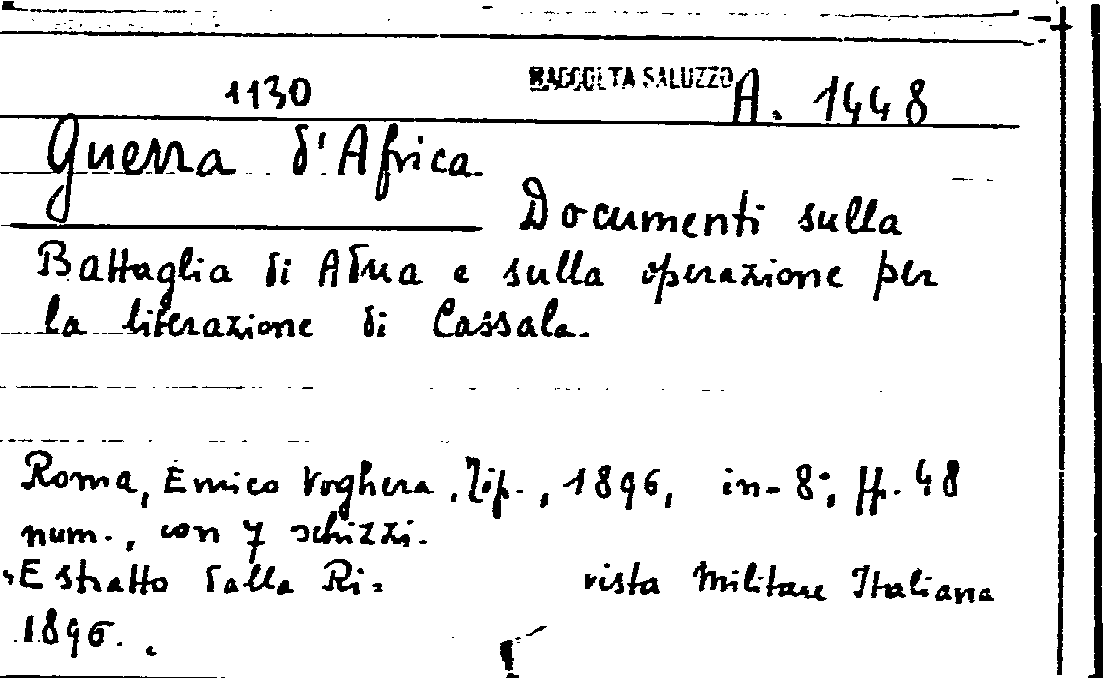 1130 RACCOLTA SALUZZO A. 1448
Guerra d'Africa.
Documenti sulla
Battaglia di Adua e sulla operazione per
la liberazione di Cassala.
Roma, Enrico Voghera, Tip., 1896, in-8°, ff. 48
num., con 7 schizzi.
Estratto dalla Ri= vista Militare Italiana
1896.